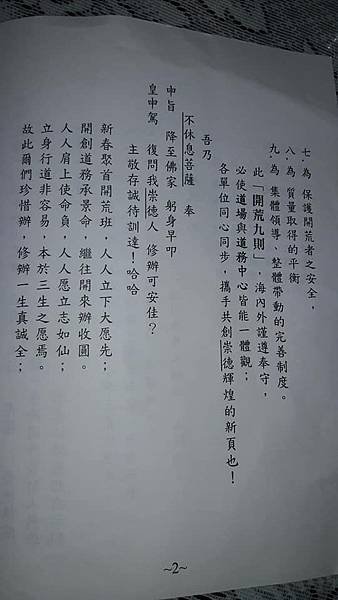 七、為 保護開荒者之安全，
八、為 質量取得的平衡
九、為 集體領導、整體帶動的完善制度。
此「開荒九則」，海內外謹遵奉守，
必使道場與道務中心皆能一體觀；
各單位同心同步，攜手共創崇德輝煌的新頁也！
吾乃
不休息菩薩 奉
中旨 降至佛家 躬身早叩
皇中駕 復問我崇德人 修辦可安佳？
主敬存誠待訓達！哈哈
新春聚首開荒班，人人立下大愿先；
開創道務承景命，繼往開來辦收圓。
人人肩上使命負，人人愿立志如仙；
立身行道非容易，本於三生之愿焉。
故此爾們珍惜辦，修辦一生真誠全；
~2~